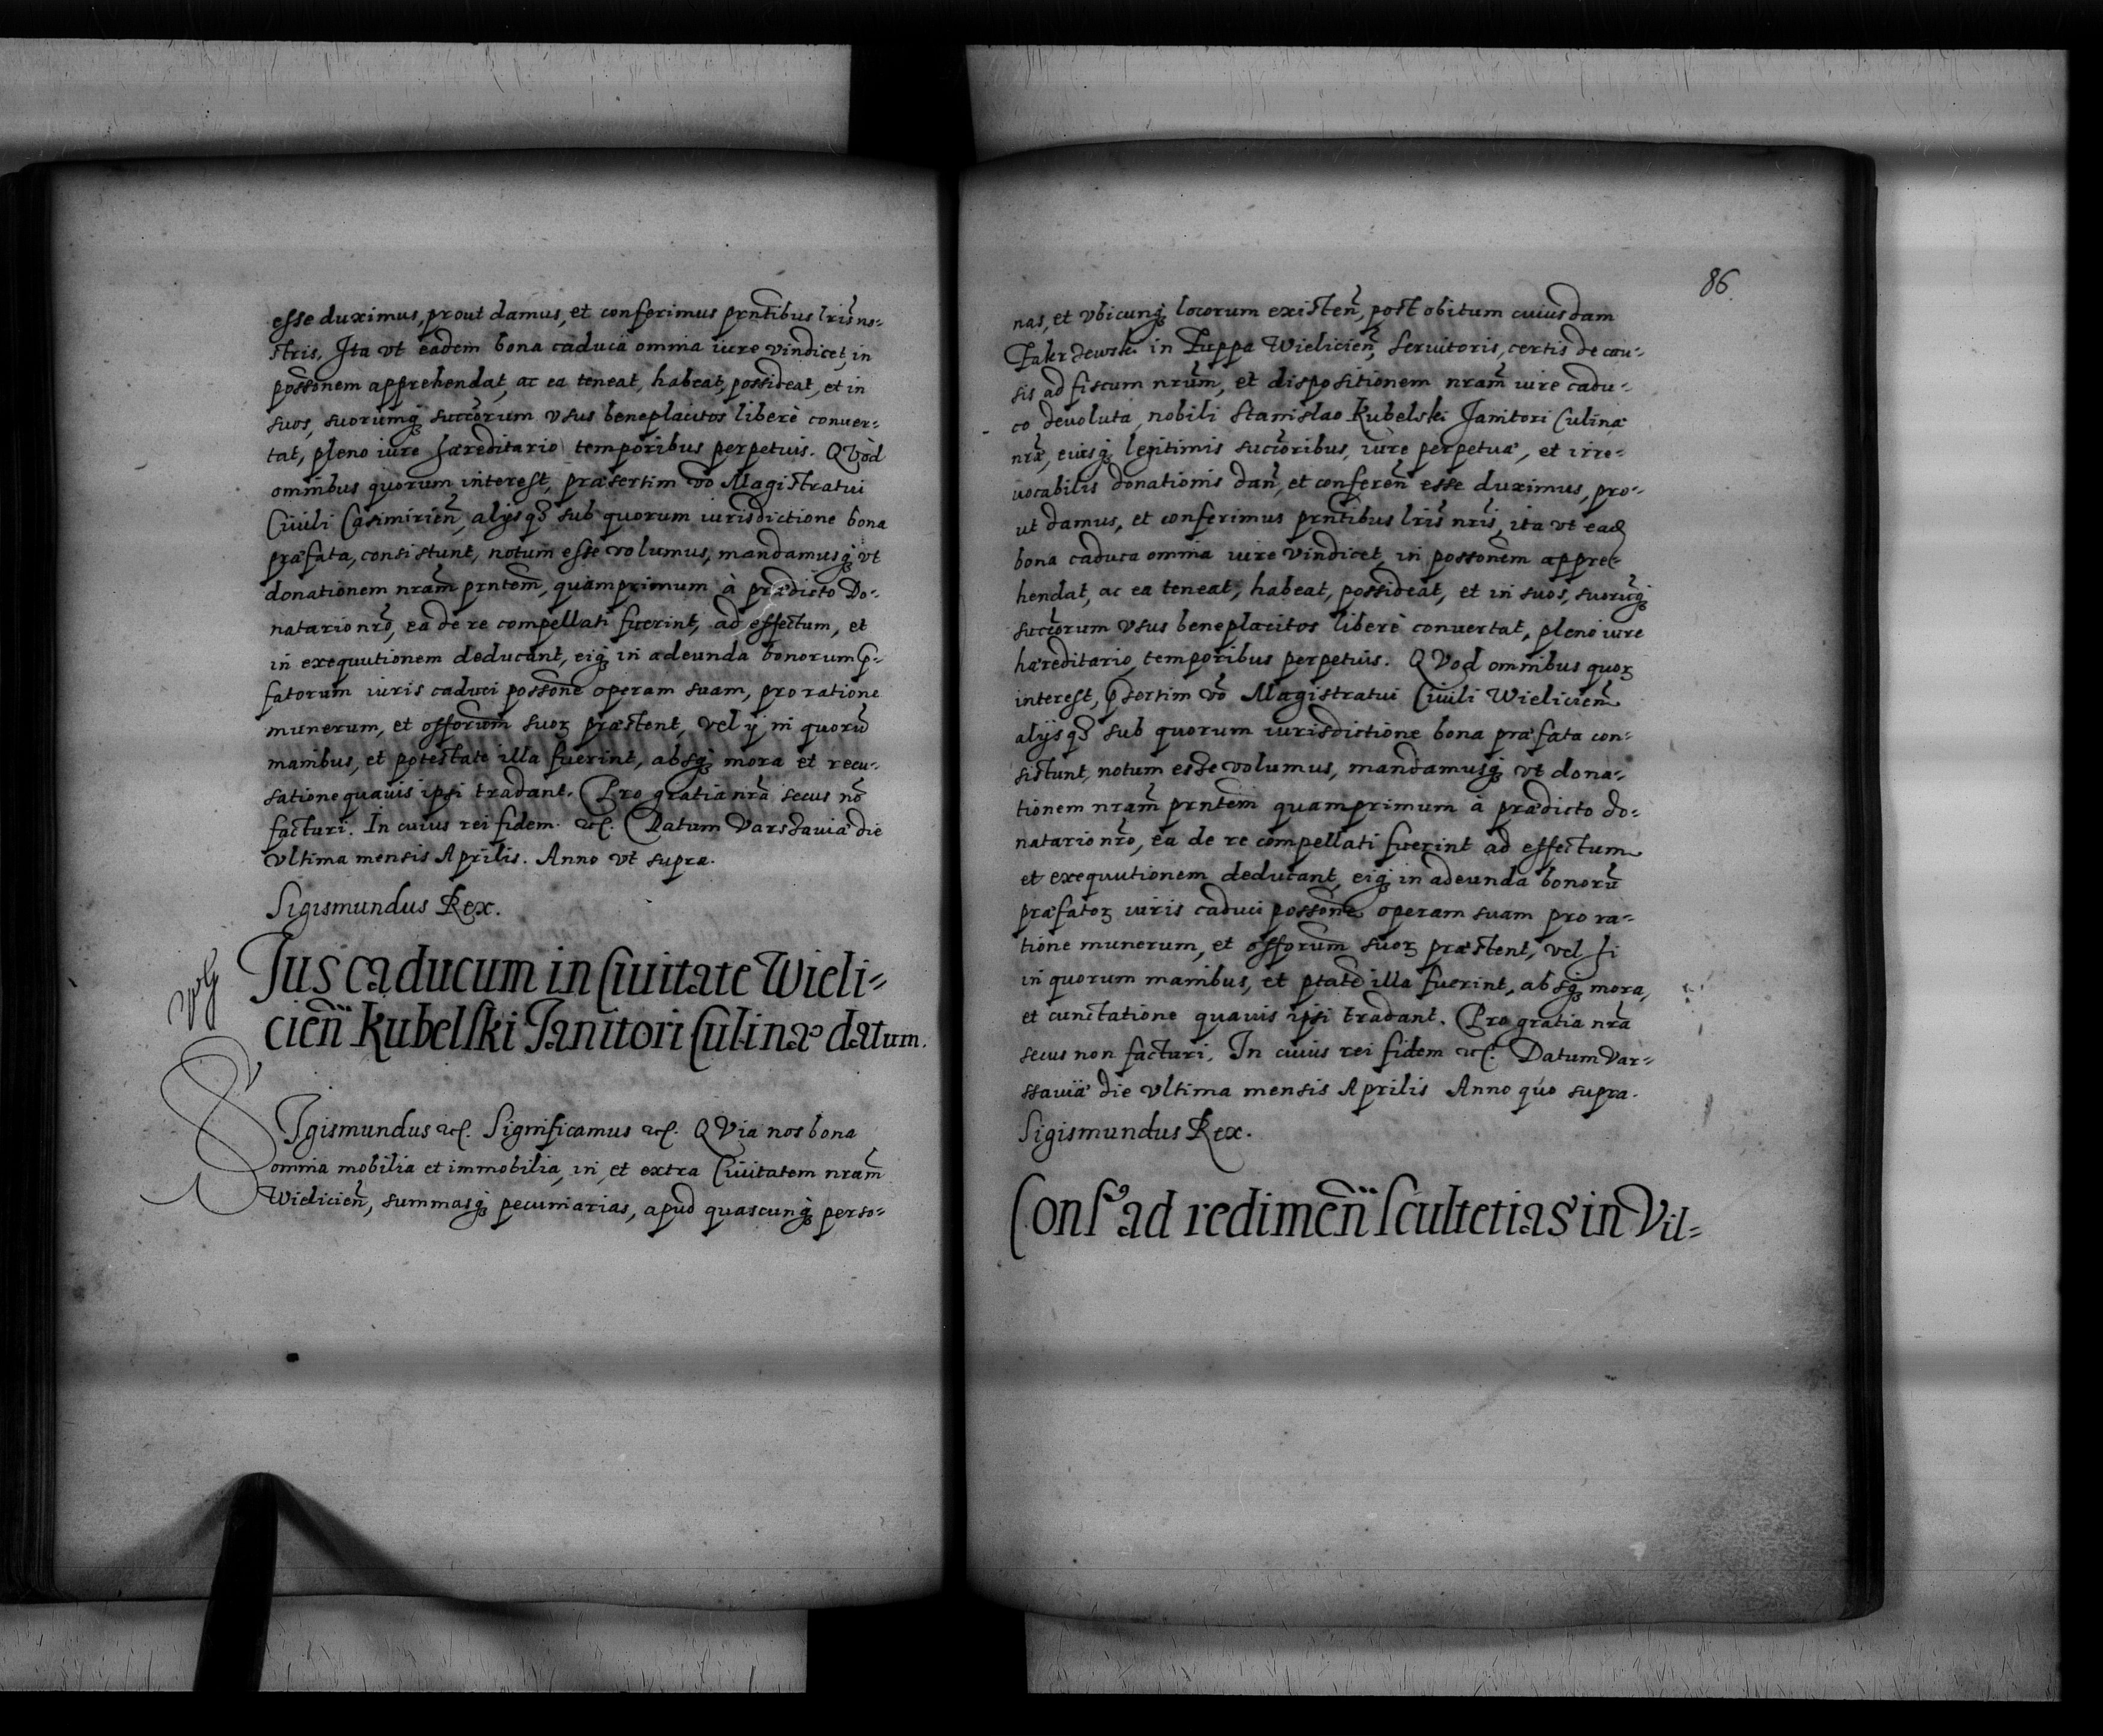 esse duximus, prout damus, et conferimus prntibus lris no-
stris. Ita vt eadem bona caduca omnia iure vindicet, in
possonem apprehendat, ac ea teneat, habeat, possideat, et in
suos, suorumq succorum vsus beneplacitos liberè conuer-
tat, pleno iure hæreditario temporibus perpetuis. QVod
omnibus quorum interest, præsertim vo Magistratui
Ciuili Casimirien, alijsq sub quorum iurisdictione bona
præfata, consistunt, notum esse volumus, mandamusq vt
donationem nram prntem, quamprimum à prædicto Do-
natario nro, ea de re compellati fuerint, ad effectum, et
in exequutionem deducant, eiq in adeunda bonorum p-
fatorum iuris caduci possone operam suam, pro ratione
munerum, et offorum suor præstent, vel ij in quorū
manibus, et potestate illa fuerint, absq mora et recu-
satione quauis ipsi tradant. Pro gratia nra secus nō
facturi. In cuius rei fidem etc. Datum Varsauiæ die
vltima mensis Aprilis. Anno vt supra.
Sigismundus Rex.
Jus caducum in Ciuitate Wieli-
cien Kubelski Janitori Culinæ datum.
SIgismundus etc. Significamus etc. QVia nos bona
omnia mobilia et immobilia, in, et extra Ciuitatem nram
Wielicien, summasq pecuniarias, apud quascunq perso-
86.
nas, et vbicunq locorum existen, post obitum cuiusdam
in Zuppa Wielicien, Seruitoris, certis de cau-
sis ad fiscum nrum, et dispositionem nram iure cadu-
co devoluta, nobili Stanislao Kubelski Janitori Culinæ
nræ, eiusq legitimis succoribus, iure perpetuæ, et irre-
uocabilis donationis dan, et conferen esse duximus, pro-
ut damus, et conferimus prntibus lris nris, ita vt ead
bona caduca omnia iure vindicet, in possonem appre-
hendat, ac ea teneat, habeat, possideat, et in suos, suorūq
succorum vsus beneplacitos liberè conuertat, pleno iure
hæreditario, temporibus perpetuis. QVod omnibus quor
interest, psertim vo Magistratui Ciuili Wielicien
alijsq sub quorum iurisdictione bona præfata con-
sistunt, notum esse volumus, mandamusq vt dona-
tionem nram prntem quamprimum à prædicto do-
natario nro, ea de re compellati fuerint ad effectum
et exequutionem deducant, eiq in adeunda bonorū
præfator iuris caduci possone operam suam pro ra-
tione munerum, et offorum suor præstent, vel si
in quorum manibus, et ptate illa fuerint, absq mora,
et cunctatione quauis ipsi tradant. Pro gratia nra
secus non facturi. In cuius rei fidem etc. Datum Var-
sauiæ die vltima mensis Aprilis Anno quo supra.
Sigismundus Rex.
Cons ad redimen scultetias in Vil-